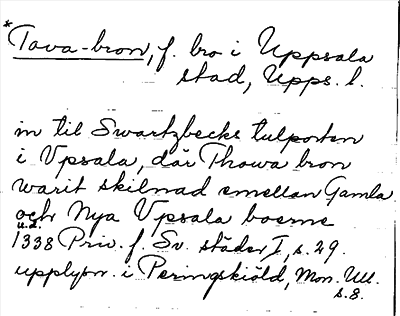 *Tava-bron, f. bro i Uppsala
stad, Upps. l.
in til Swartzbecks tulporten
i Vpsala, där Thawa bron
warit skilnad emellan Gamla
och Nya Vpsala boerne
u.d.
1338 Priv. f. Sv. städer I, s. 29.
upplysn. i Peringskiöld, Mon. Ull.
s. 8.